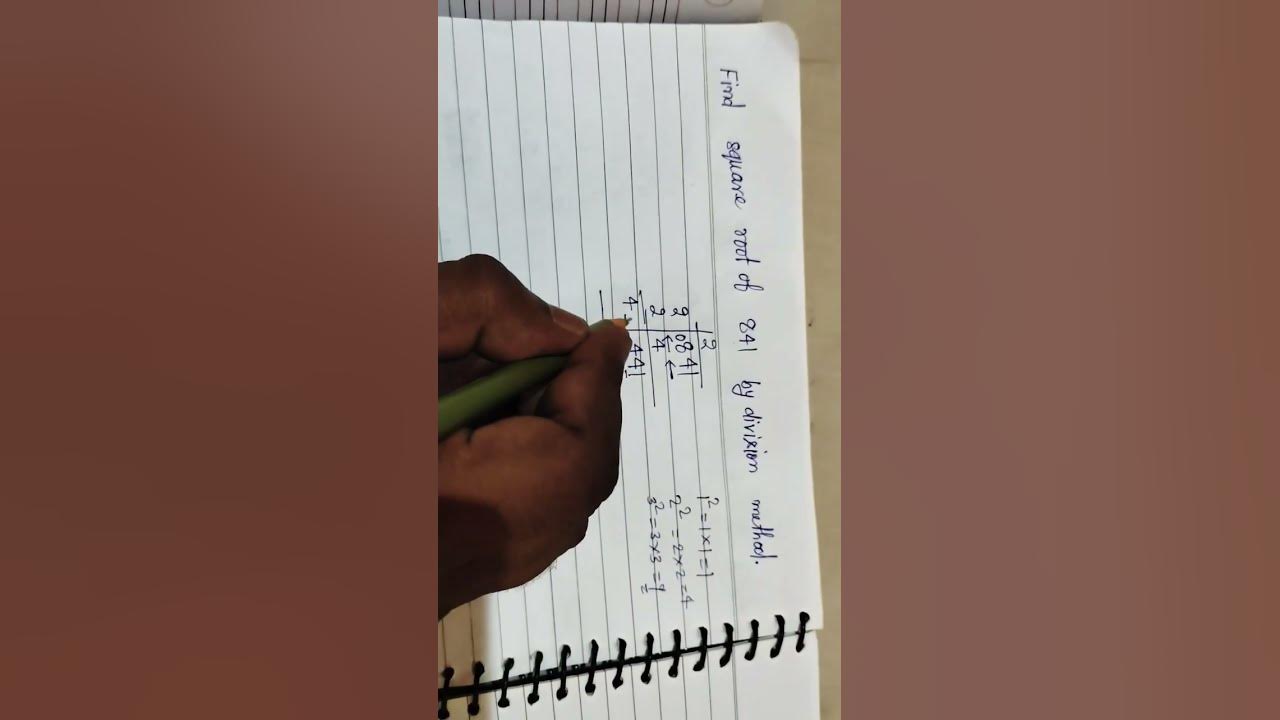 Find square root of 841 by division method.
2
2 0841
2 4
4 441
1² = 1×1 = 1
2² = 2×2 = 4
3² = 3×3 = 9